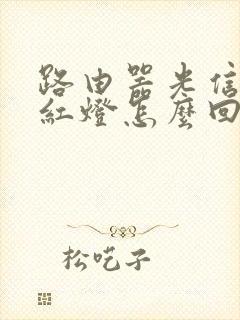 路由器光信
紅燈怎麼回
松吃子